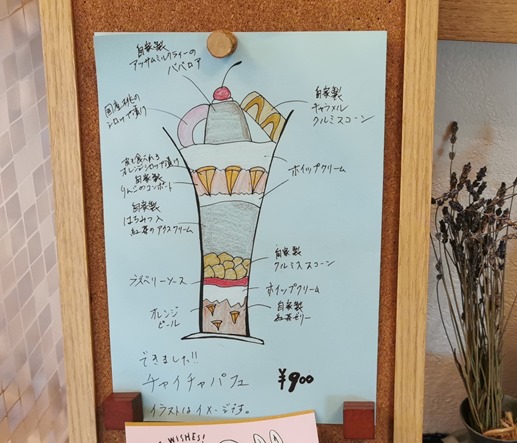 自家製
アッサムミルクティーの
ババロア
国産桃の
シロップ漬け
自家製
キャラメル
クルミスコーン
皮も食べれる
オレンジシロップ漬け
自家製
りんごのコンポート
ホイップクリーム
自家製
はちみつ入
紅茶のアイスクリーム
自家製
クルミスコーン
ラズベリーソース
ホイップクリーム
オレンジ
ピール
自家製
紅茶ゼリー
できました!!
チャイチャパフェ ¥900
イラストはイメージです。
WISHES!